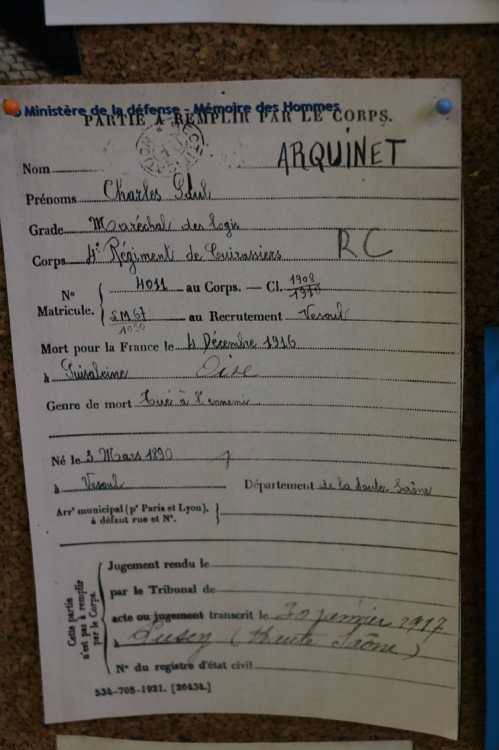 © Ministère de la défense - Mémoire des Hommes
PARTIE À REMPLIR PAR LE CORPS.
Nom ARQUINET
Prénoms Charles Paul
Grade Maréchal des Logis
Corps 4e Régiment de Cuirassiers RC
N° Matricule. 4011 au Corps. — Cl. 1908 1910
LM67 1050 au Recrutement Vesoul
Mort pour la France le 4 Décembre 1916
à Puisaleine Oise
Genre de mort Tué à l'ennemi
Né le 3 Mars 1890
à Vesoul Département de la Haute Saône
Arr' municipal (p' Paris et Lyon),
à défaut rue et N°.
Cette partie
n'est pas à remplir
par le Corps.
Jugement rendu le
par le Tribunal de
acte ou jugement transcrit le 30 janvier 1917
à Pusey (Haute Saône)
N° du registre d'état civil
534-708-1921. [26434.]